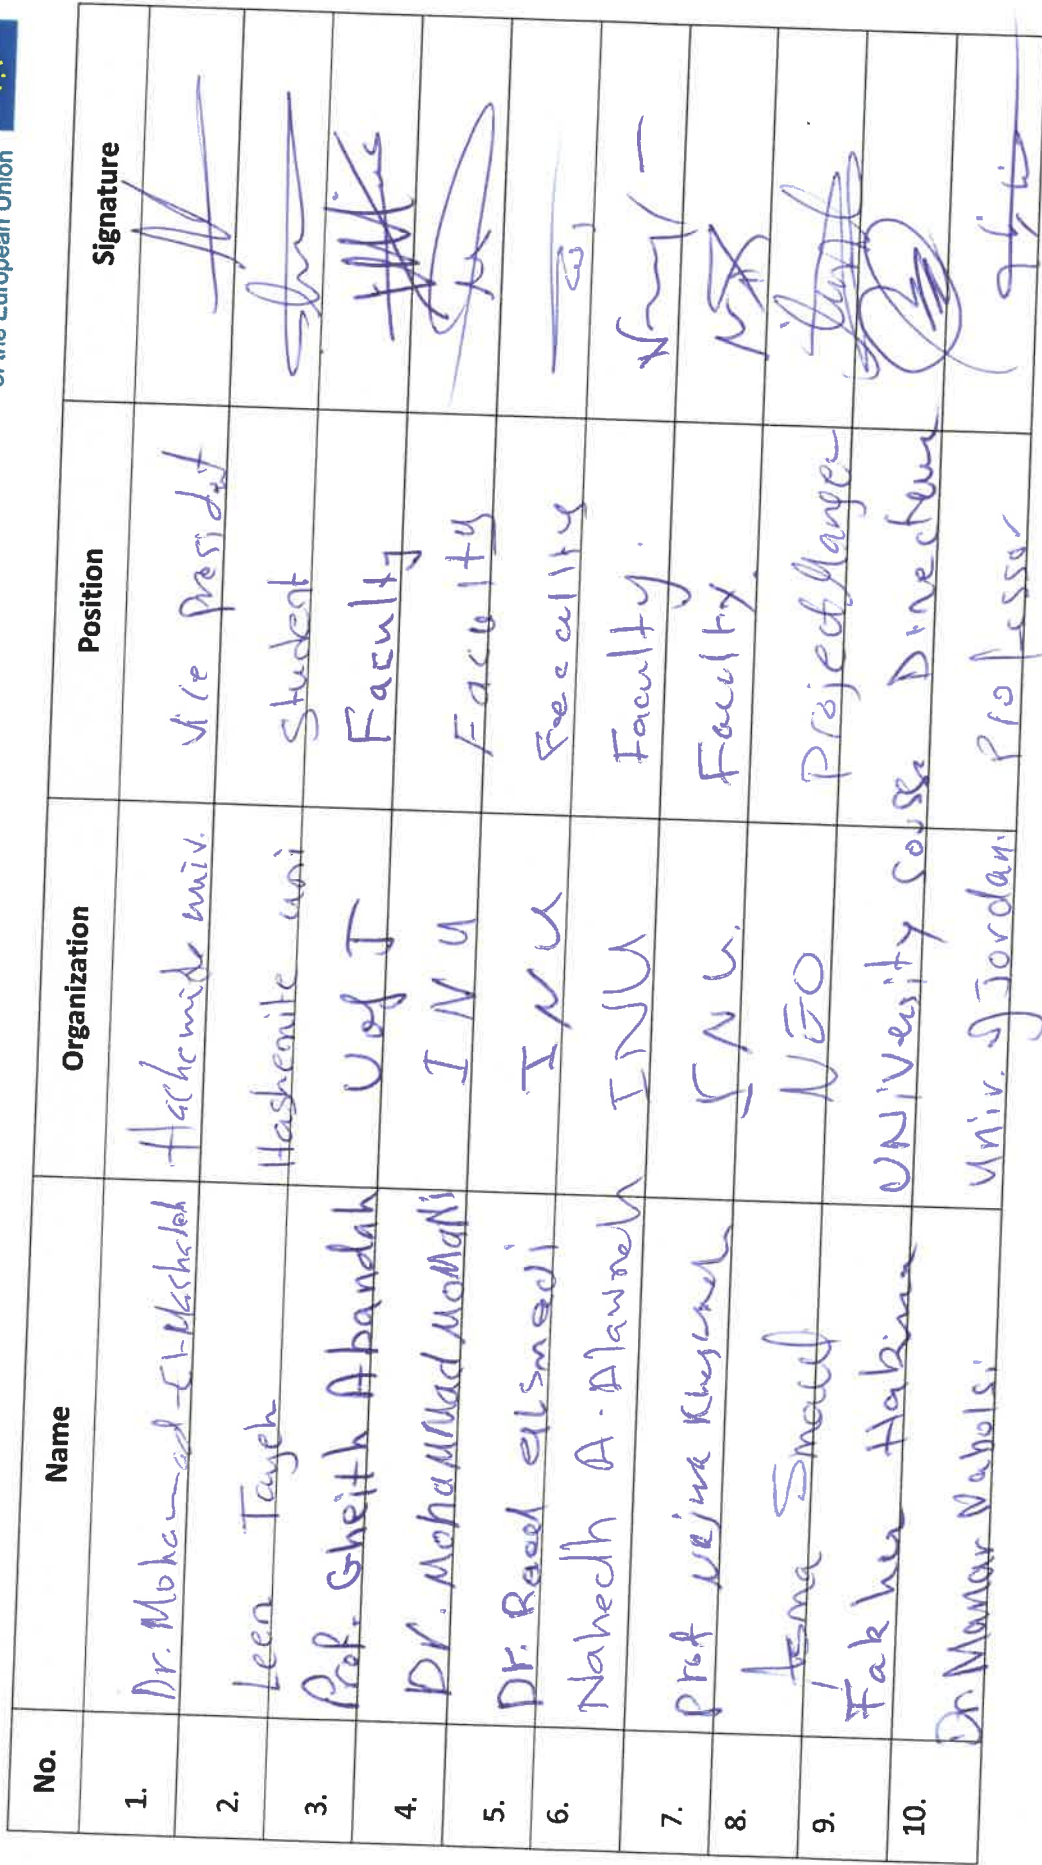 of the European Union
No. Name Organization Position Signature
1. Dr. Mohammad El-Mashaleh Hachemite univ. Vice president
2. Leen Tayeh Hashemite uni Student
3. Prof. Gheith Abandah U of J Faculty
4. Dr. Mohammad MoMaNi I N U Faculty
5. Dr. Raed alsmadi I N U Faculty
6. Nahedh A. Alawneh INU Faculty.
7. Prof Najwa Khasawneh I N U. Faculty.
8. Asma Smaoui NGO Project Manger
9. Fakher Hakima UNiVersity Sousse Directeur
10. Dr Manar Nabolsi Univ. of Jordan. Professor